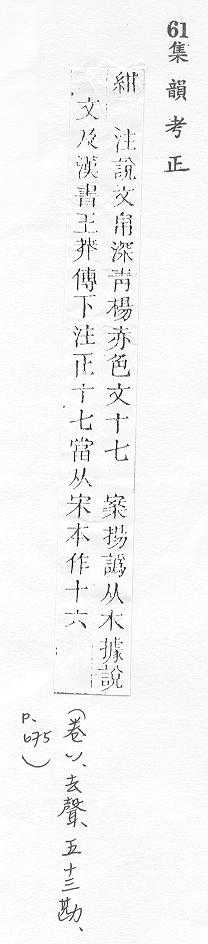 61集韻考正
紺 注說文帛深青楊赤色文十七 案揚譌从木據說
文及漢書王莽傳下注正十七當从宋本作十六
(卷八、去聲、五十三勘、
p.675)